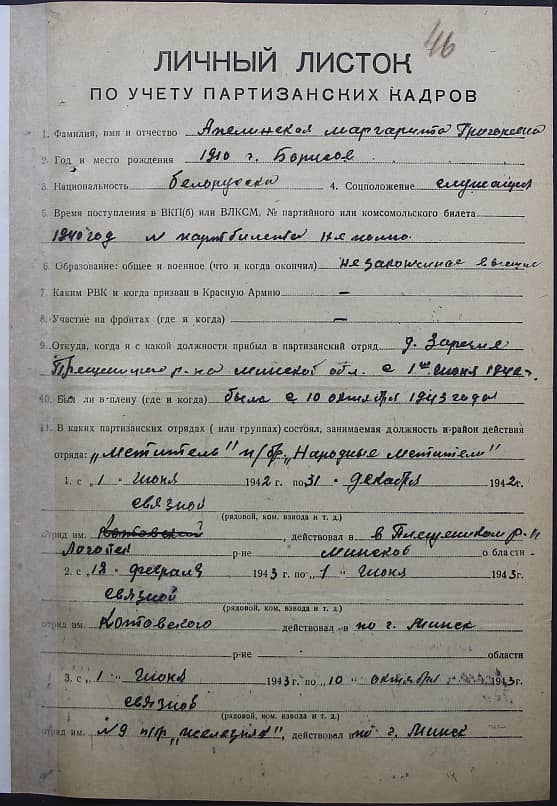 46
ЛИЧНЫЙ ЛИСТОК
ПО УЧЕТУ ПАРТИЗАНСКИХ КАДРОВ
1. Фамилия, имя и отчество Апелинская Маргарита
2. Год и место рождения 1910 г. Борисов
3. Национальность белоруска 4. Соцположение служащая
5. Время поступления в ВКП(б) или ВЛКСМ, № партийного или комсомольского билета
1940 год № партбилета не помню.
6. Образование: общее и военное (что и когда окончил) незаконченное высшее
7. Каким РВК и когда призван в Красную Армию —
8. Участие на фронтах (где и когда) —
9. Откуда, когда и с какой должности прибыл в партизанский отряд д. Заречье
р-на Минской обл. с 1го июня 1942 г.
10. Был ли в плену (где и когда) была с 10 октября 1943 года
11. В каких партизанских отрядах ( или группах) состоял, занимаемая должность и район действия
отряда: „Мститель" п/бр. „Народные мстители"
1. с „1 " июня 1942 г. по 31 " декабря 1942 г.
связной
(рядовой, ком. взвода и т. д.)
отряд им. Котовский , действовал в в р-н
Логойск р-не Минской области
2. с „18 " февраля 1943 г. по „1 " июня 1943 г.
связной
(рядовой, ком. взвода и т. д.)
отряд им. Котовского действовал в по г. Минск
р-не области
3. с „1 " июня 1943 г. по „10 " октября 1943 г.
связной
(рядовой, ком. взвода и т. д.)
отряд им. №9 п/бр. „Железняк", действовал в по г. Минск